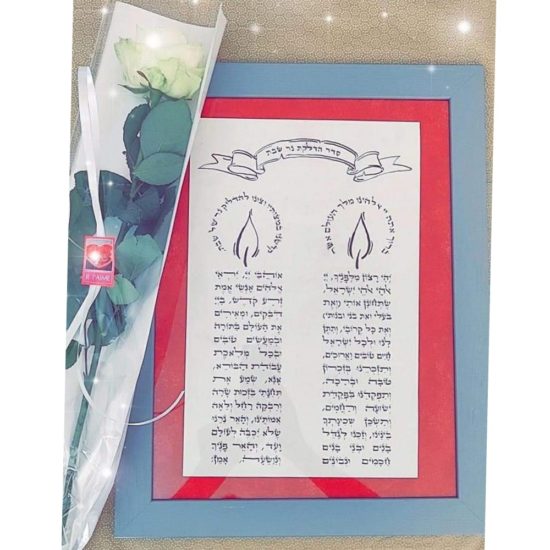 סדר הדלקת נר שבת
ברוך אתה יי אלהינו מלך העולם אשר
קדשנו במצותיו וצונו להדליק נר של שבת
יהי רצון מלפניך, יי
אלהי ואלהי ישראל,
שתחונן אותי (ואת
בעלי ואת בני ובנותי)
ואת כל קרובי, ותתן
לנו ולכל ישראל
חיים טובים וארוכים,
ותזכרנו בזכרון
טובה וברכה,
ותפקדנו בפקדת
ישועה ורחמים,
ותשכן שכינתך
בינינו, וזכנו לגדל
בנים ובני בנים
חכמים ונבונים
אוהבי יי יראי
אלהים אנשי אמת
זרע קדש, ביי
דבקים, ומאירים
את העולם בתורה
ובמעשים טובים
ובכל מלאכת
עבודת הבורא,
אנא, שמע את
תחנתי בזכות שרה
ורבקה רחל ולאה
אמותינו, והאר נרנו
שלא יכבה לעולם
ועד, והאר פניך
ונושעה, אמן:
JE T'AIME